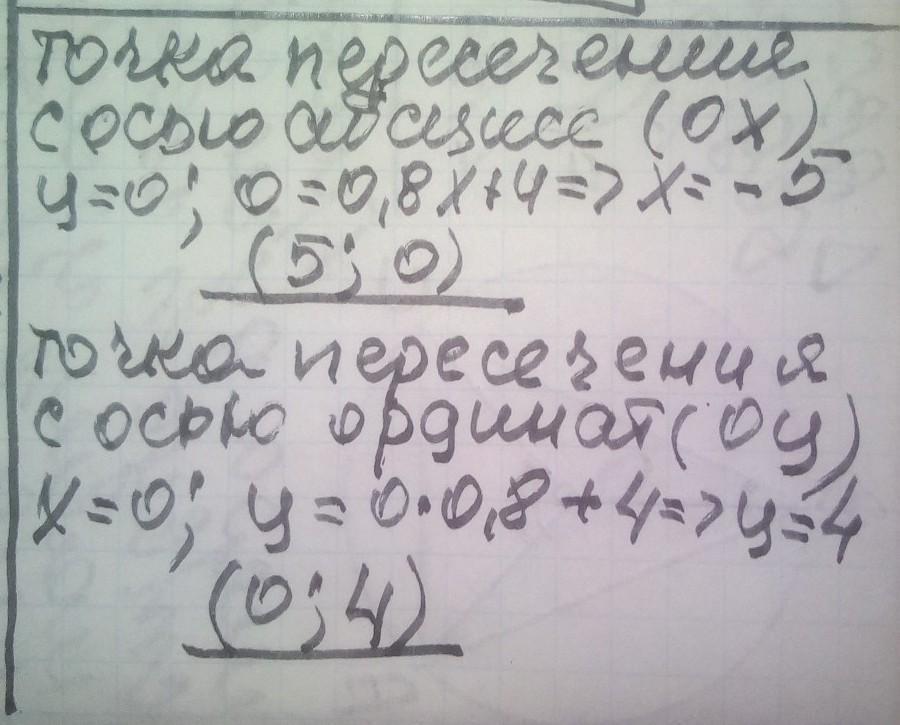 точка пересечения
с осью абсцисс (ОХ)
у=0; 0=0,8х+4=> х= - 5
(5; 0)
точка пересечения
с осью ординат (ОУ)
х=0; у = 0·0,8 +4=>у=4
(0; 4)